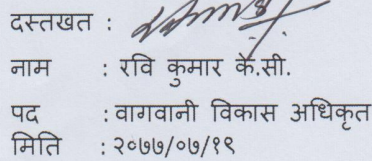 दस्तखत :
नाम : रवि कुमार के.सी.
पद : वागवानी विकास अधिकृत
मिति : २०७७/०७/१९